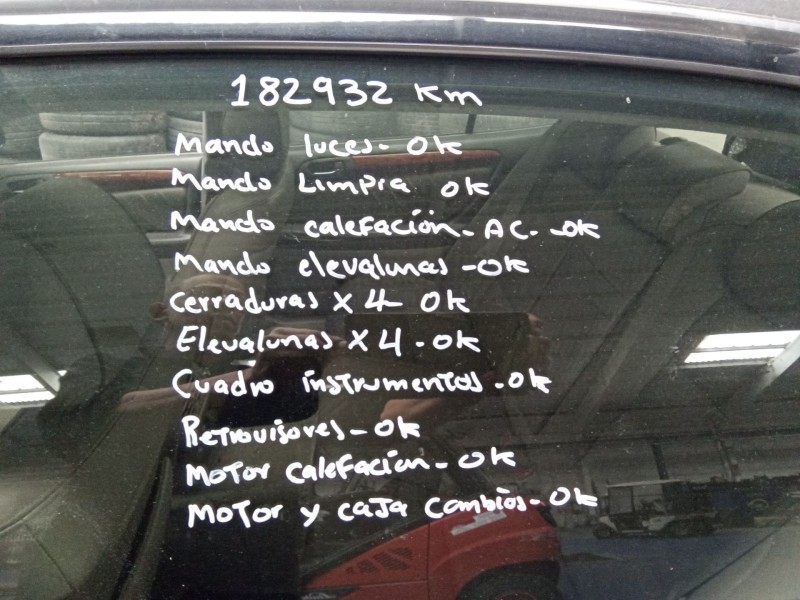 182932 Km
Mando luces- OK
Mando Limpia OK
Mando calefación- AC.-OK
Mando elevalunas -OK
cerraduras X 4 OK
Elevalunas X 4 - OK
Cuadro instrumentos - OK
Retrovisores - OK
Motor calefacion - OK
Motor y caja cambios- OK